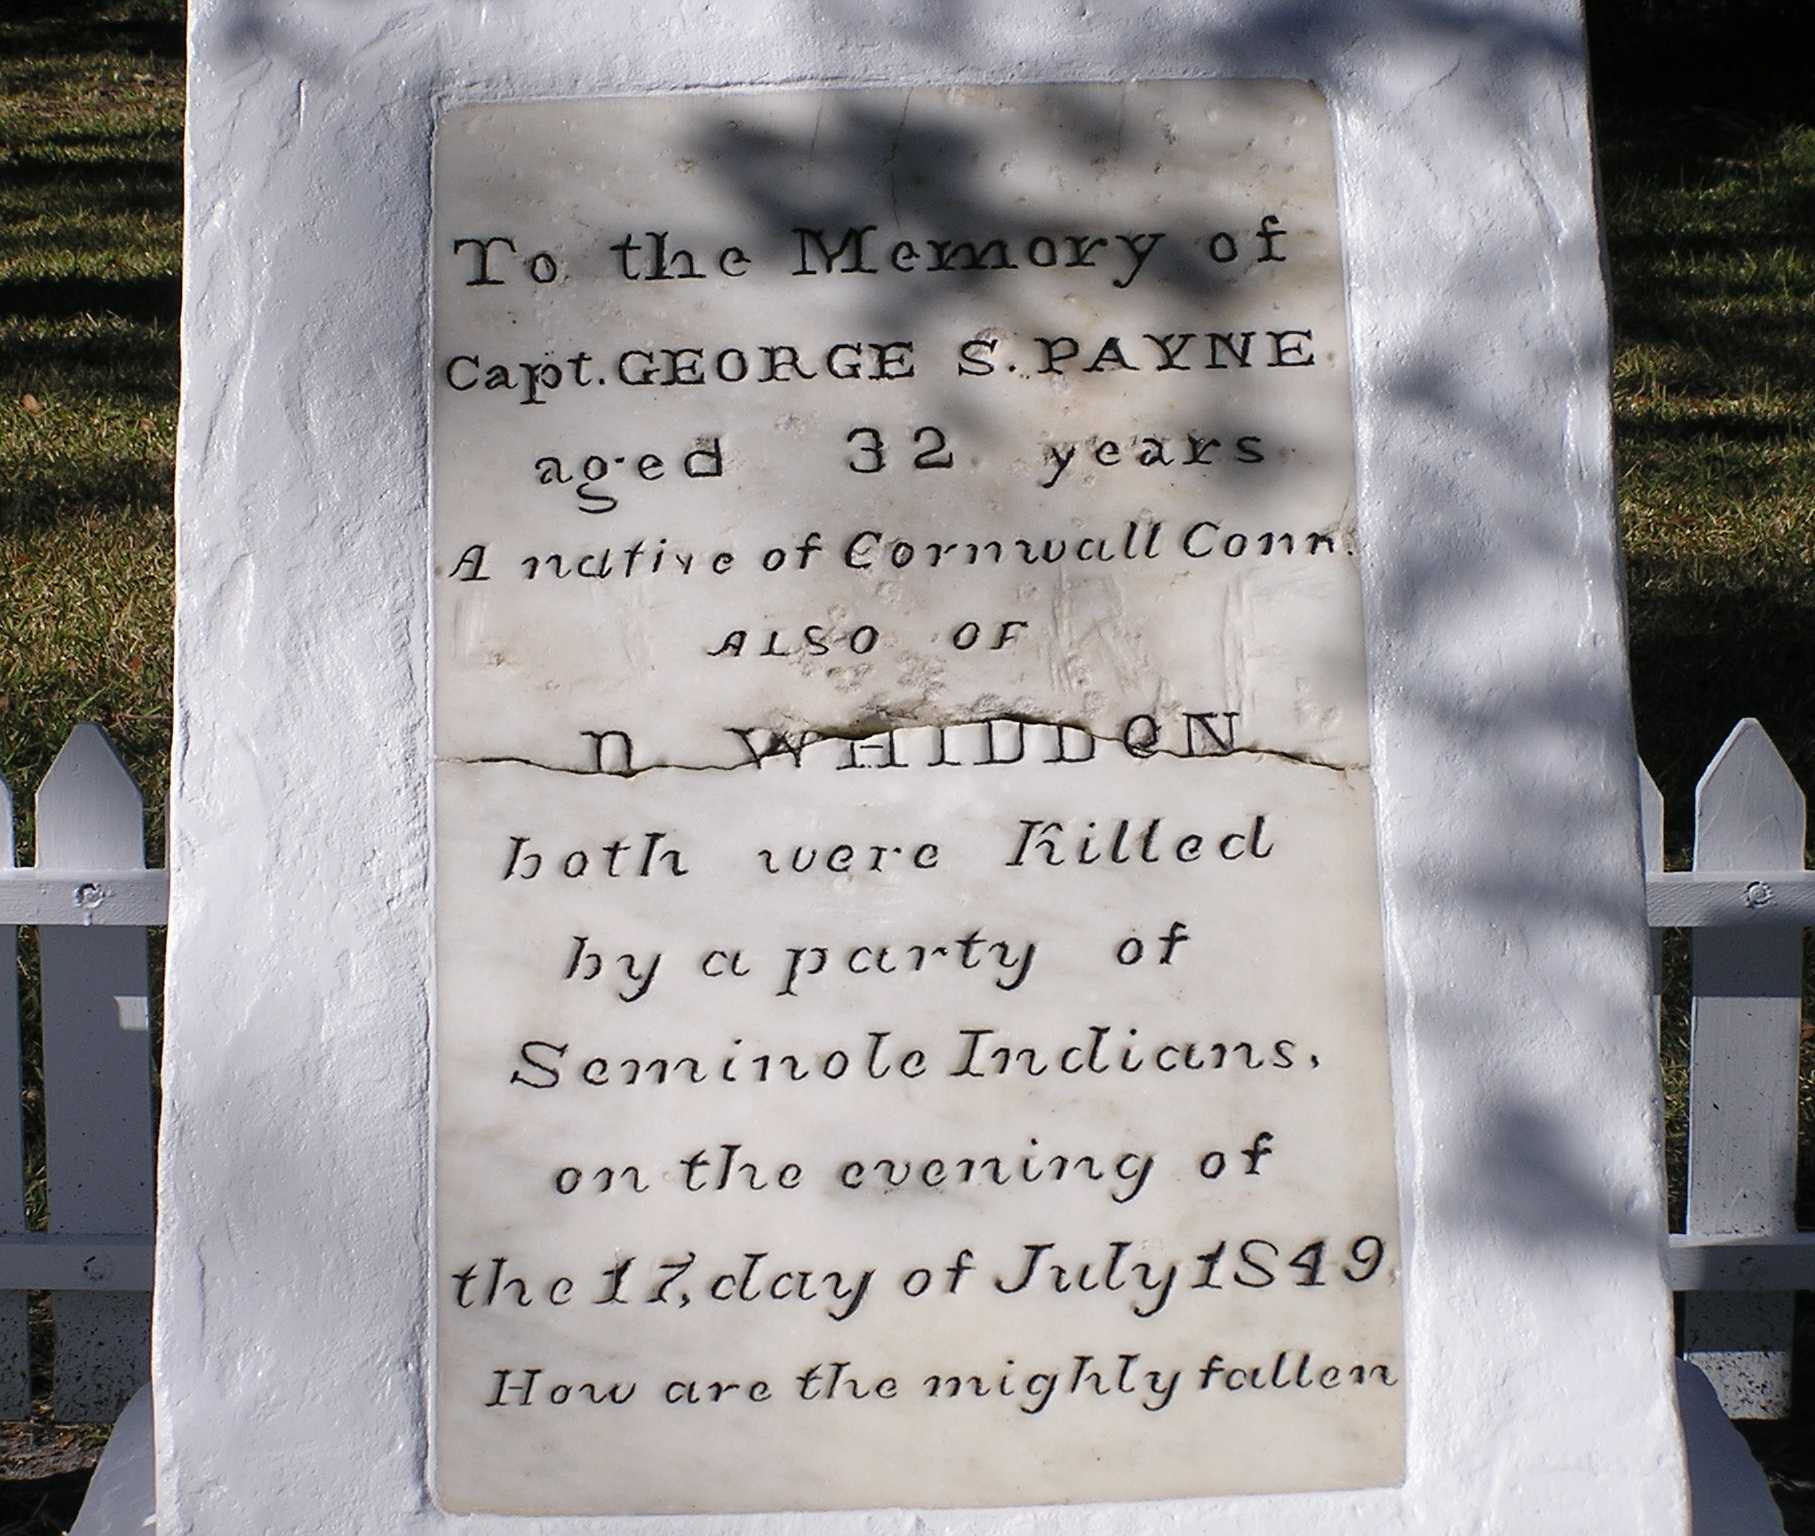 To the Memory of
Capt. GEORGE S. PAYNE
aged 32 years
A native of Cornwall Conn.
ALSO OF
D WHIDDEN
both were Killed
by a party of
Seminole Indians,
on the evening of
the 17, day of July 1849
How are the mighly fallen